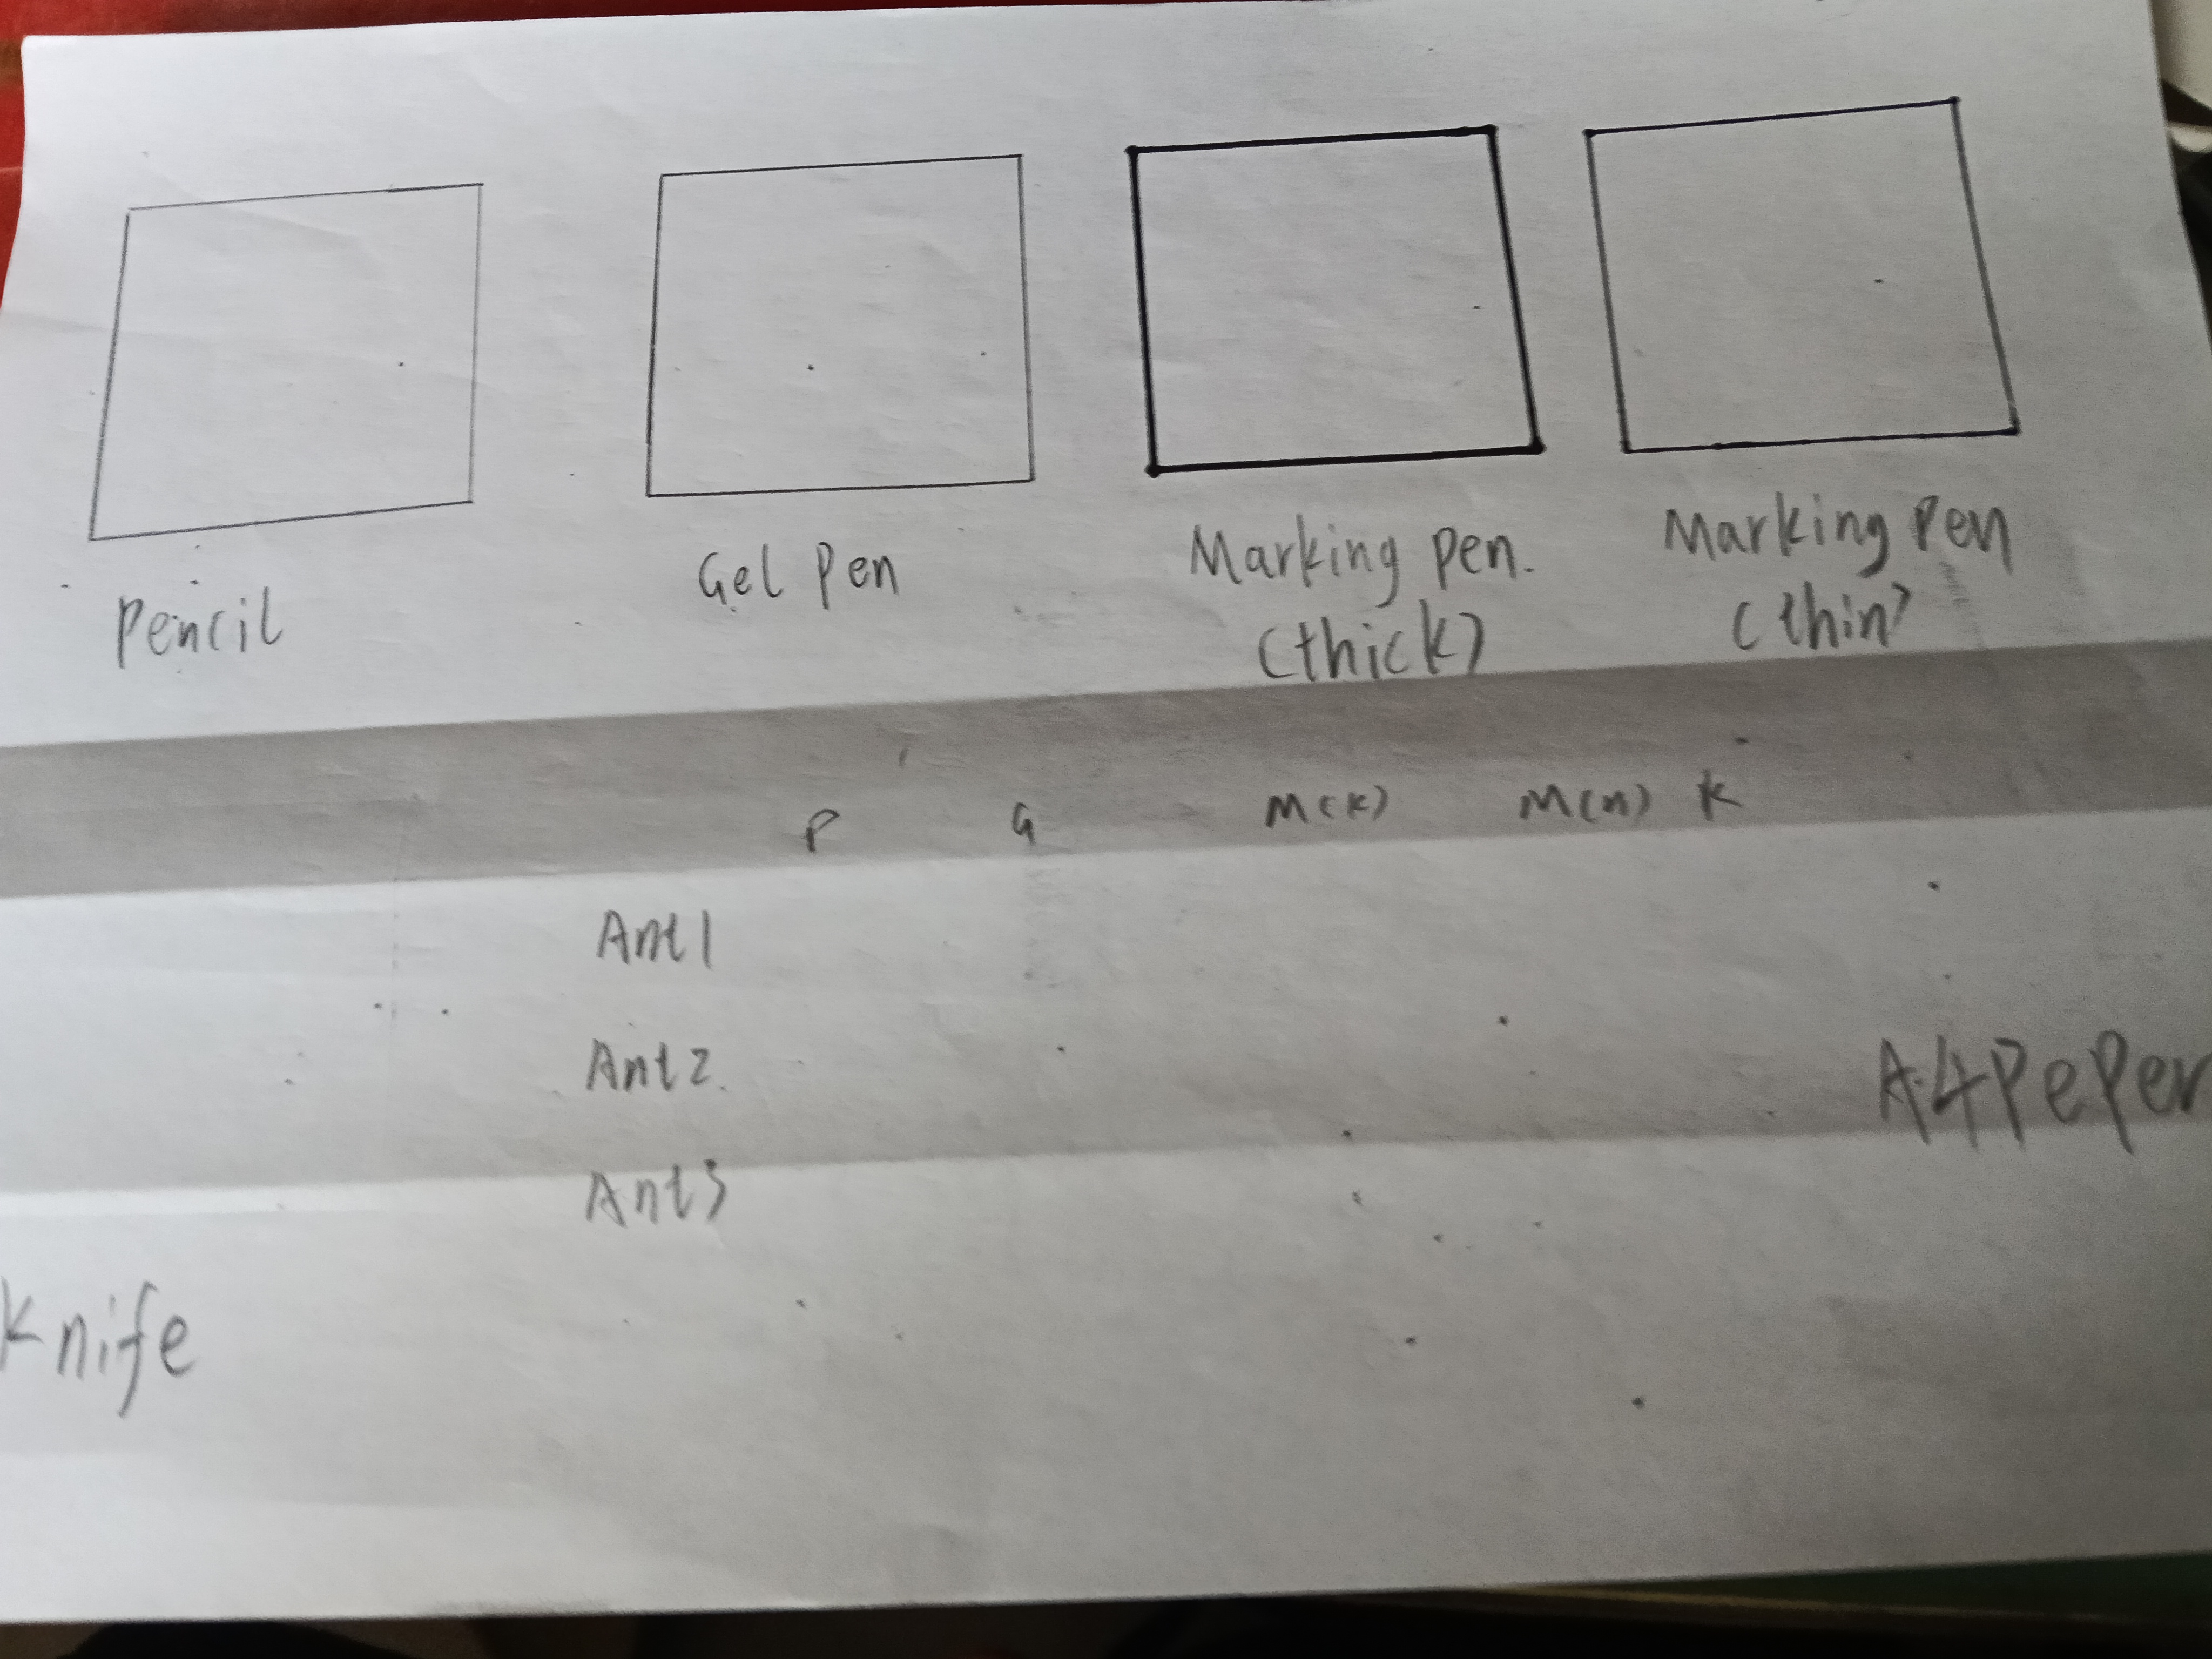 Pencil
Gel Pen
Marking pen.
(thick)
Marking Pen
(thin)
P G M(k) M(n) K
Ant1
Ant2.
Ant3
A4PePer
Knife